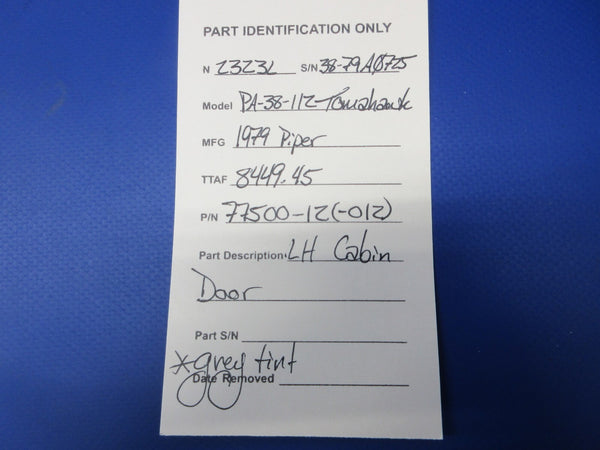 PART IDENTIFICATION ONLY
N 2323L S/N 38-79A0725
Model PA-38-112-Tomahawk
MFG 1979 Piper
TTAF 8449.45
P/N 77500-12(-012)
Part Description: LH Cabin
Door
Part S/N
*grey tint
Date Removed